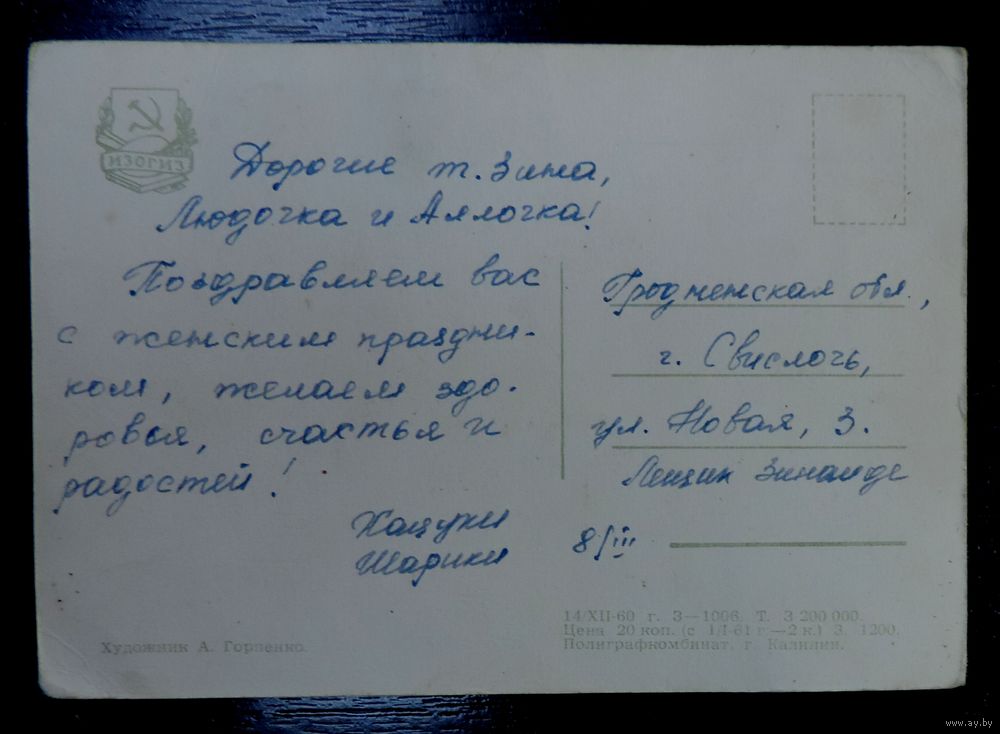 ИЗОГИЗ
Дорогие т. Зина,
Людочка и Аллочка!
Поздравляем вас
с женским праздни-
ком, желаем здо-
ровья, счастья и
радостей!
Хацуки
Шарики
8/III
Гродненская обл.,
г. Свислочь,
ул. Новая, 3.
Лещик Зинаиде
Художник А. Горпенко
14/XII-60 г. З—1006. Т. 3 200 000.
Цена 20 коп. (с 1/I-61 г.—2 к.) З. 1200.
Полиграфкомбинат, г. Калинин.
www.ay.by